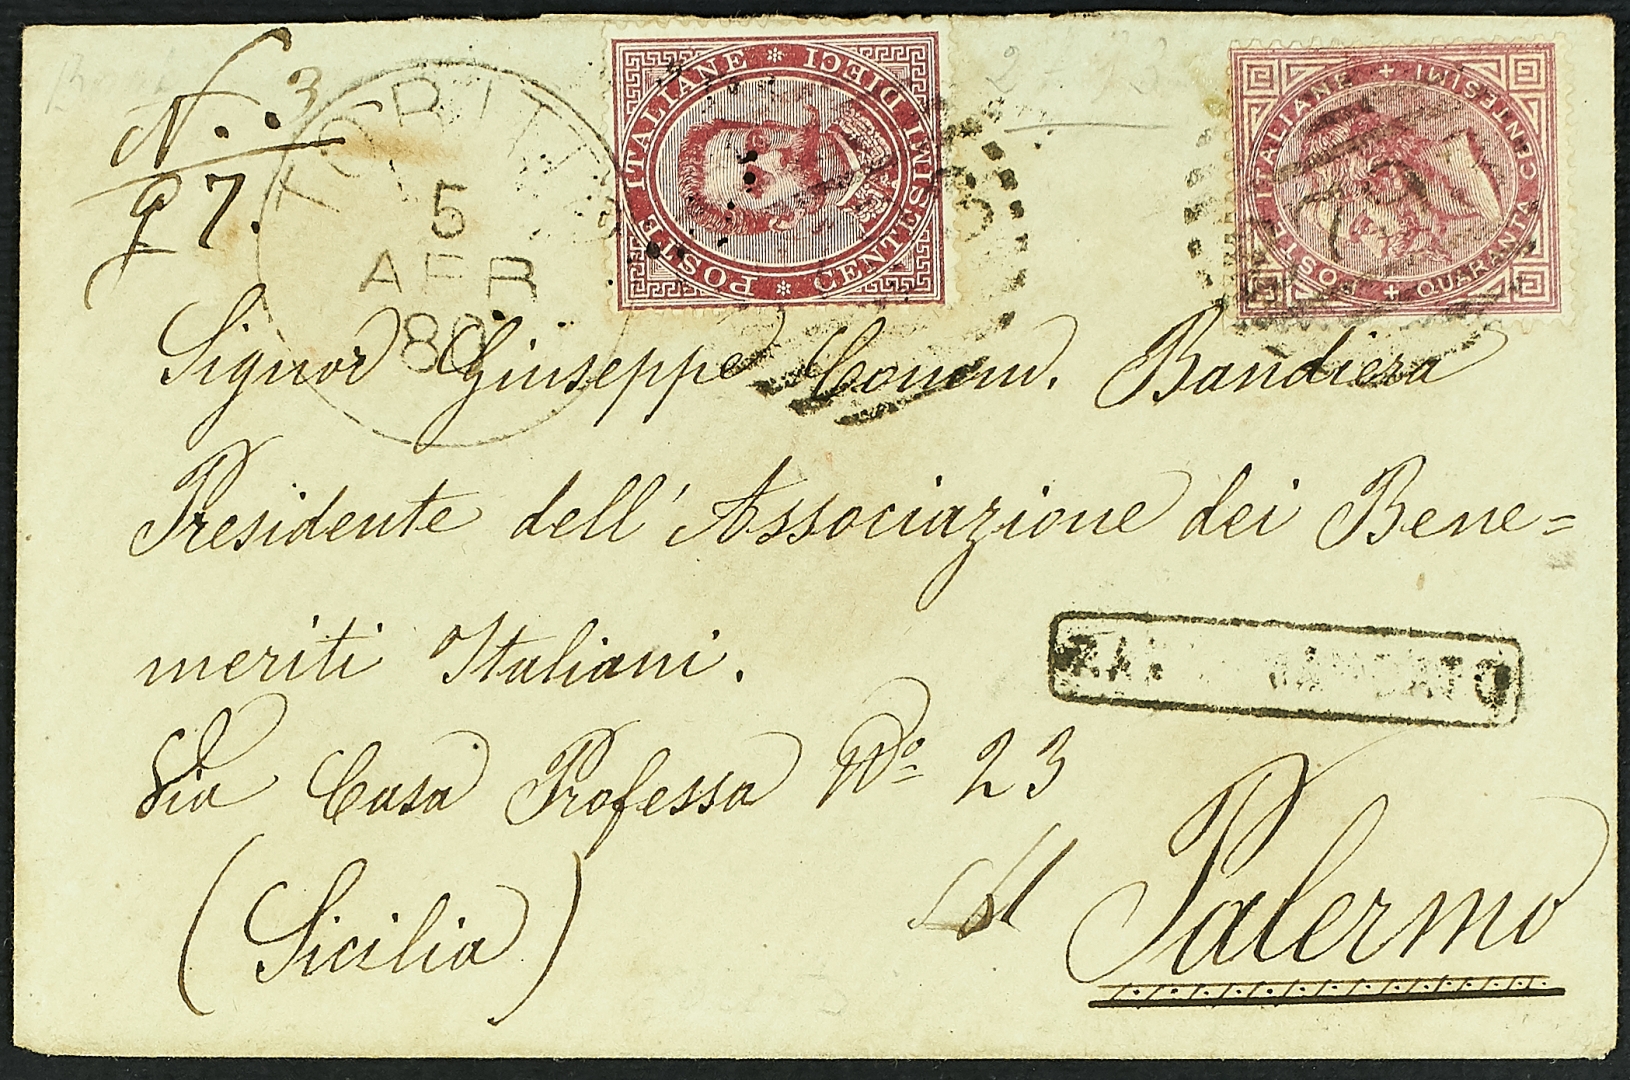 N. 3
97.
TORIT
5
APR
80
POSTE ITALIANE * DIECI CENTESIMI *
POSTE ITALIANE + QUARANTA CENTESIMI +
Signor Giuseppe Comm. Bandiera
Presidente dell'Associazione dei Bene=
meriti Italiani.
Via Casa Professa No 23
(Sicilia)
Palermo